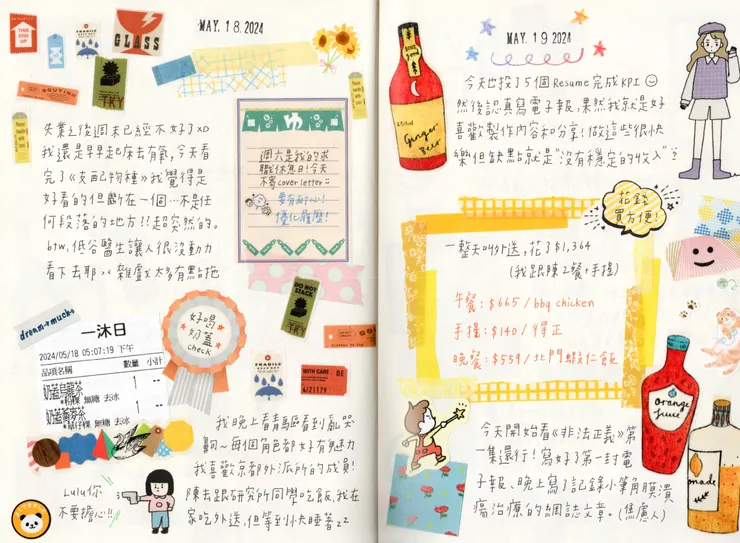 THIS END UP
FRAGILE
GLASS
TKY
MAY. 18. 2024
失業之後週末已經不好了xD
我還是早早起床去
今天看
完了《支配物種》我覺得是
好看的但斷在一個…不是任
何段落的地方??超突然的。
btw, 低谷醫生讓人很沒動力
看下去耶
ゆ
週六是我的求
職休息日!今天
不寫cover letter
要有耐心!
優化履歷!
DO NOT STACK
TKY
dream→much→
一沐日
2024/05/18 05:07:19 下午
品項名稱 數量 小計
奶蓋烏龍茶 1
粉粿 無糖 去冰
1
無糖 去冰
好喝
奶蓋
check
FRAGILE
WITH CARE
BE
4/21179
我晚上看青島區看到亂哭
每個角色都好有魅力
我喜歡京都外派所的成員!
陳去跟研究所同學吃飯,我在
家吃外送,但等到快睡著zz
Lulu你
不要擔心!!
MAY. 19 2024
今天也投了5個Resume完成KPI
然後認真寫電子報 果然我就是好
喜歡製作內容和分享!做這些很快
樂但缺點就是"沒有穩定的收入"
Ginger
Beer
花錢
買方便!
一整天叫外送,花了$1,364
(我跟陳2餐+手搖)
午餐:$665/bbq chicken
手搖:$140/得正
晚餐:$559/北門蝦仁飯
orange
Juice
今天開始看《非法正義》第
一集還行!寫好了第一封電
子報、晚上寫了記錄小筆角膜潰
瘍治療的網誌文章。(焦慮人)